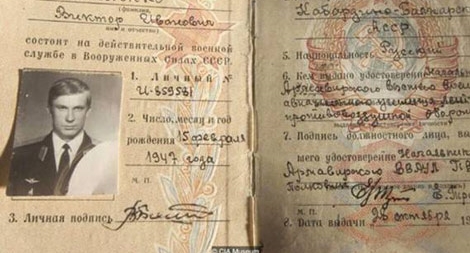 (фамилия,
Виктор Иванович
имя и отчество)
состоит на действительной военной
службе в Вооруженных Силах СССР.
1. Личный №
И-659531
2. Число, месяц и год
рождения 15 февраля
1947 года
м. п.
3. Личная подпись
Кабардино-Балкарская
АССР
5. Национальность Русский
6. Кем выдано удостоверение
Армавирского
противовоздушной обороны
7. Подпись должностного лица,
шего удостоверение Начальник
Армавирского ВВАУЛ
Полковник
м. п.
8. Дата выдачи 26 октября 19
© CIA Museum